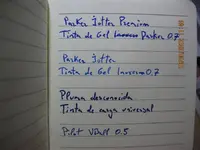 Parker Jotter Premium
Tinta de Gel Parker 0.7
Parker Jotter
Tinta de Gel Inoxcrom 0.7
Pluma desconocida
Tinta de carga universal
Pilot 0.5